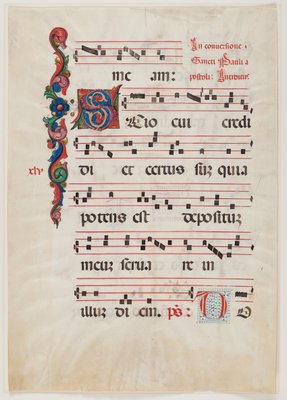 In conversione
Sancti Pauli a
postoli: Introitus.
me am:
Scio cui credi
di et certus sum quia
xlv
potens est depositum
meum serua re in
illum di em. ps: D o